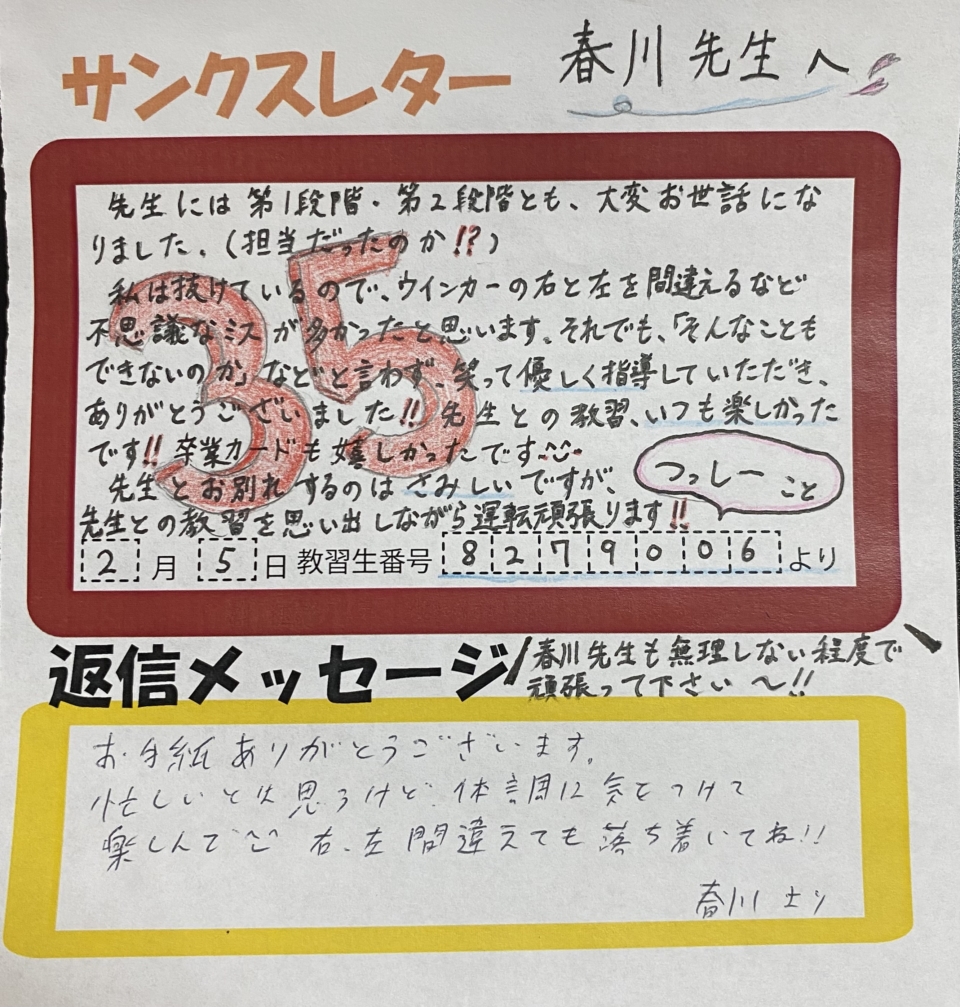 サンクスレター
春川先生へ
先生には第1段階・第2段階とも、大変お世話にな
りました。(担当だったのか!?)
私は抜けているので、ウインカーの右と左を間違えるなど
不思議なミスが多かったと思います。それでも、「そんなことも
できないのか」などと言わず、笑って優しく指導していただき、
ありがとうございました!! 先生との教習、いつも楽しかった
です!! 卒業カードも嬉しかったです
先生とお別れするのはさみしいですが、
つっしー こと
先生との教習を思い出しながら運転頑張ります!!
35
2月5日 教習生番号 8279006より
返信メッセージ
春川先生も無理しない程度で
頑張って下さい〜!!
お手紙ありがとうございます。
忙しいとは思うけど、体調に気をつけて
楽しんで 右、左間違えても落ち着いてね!!
春川より